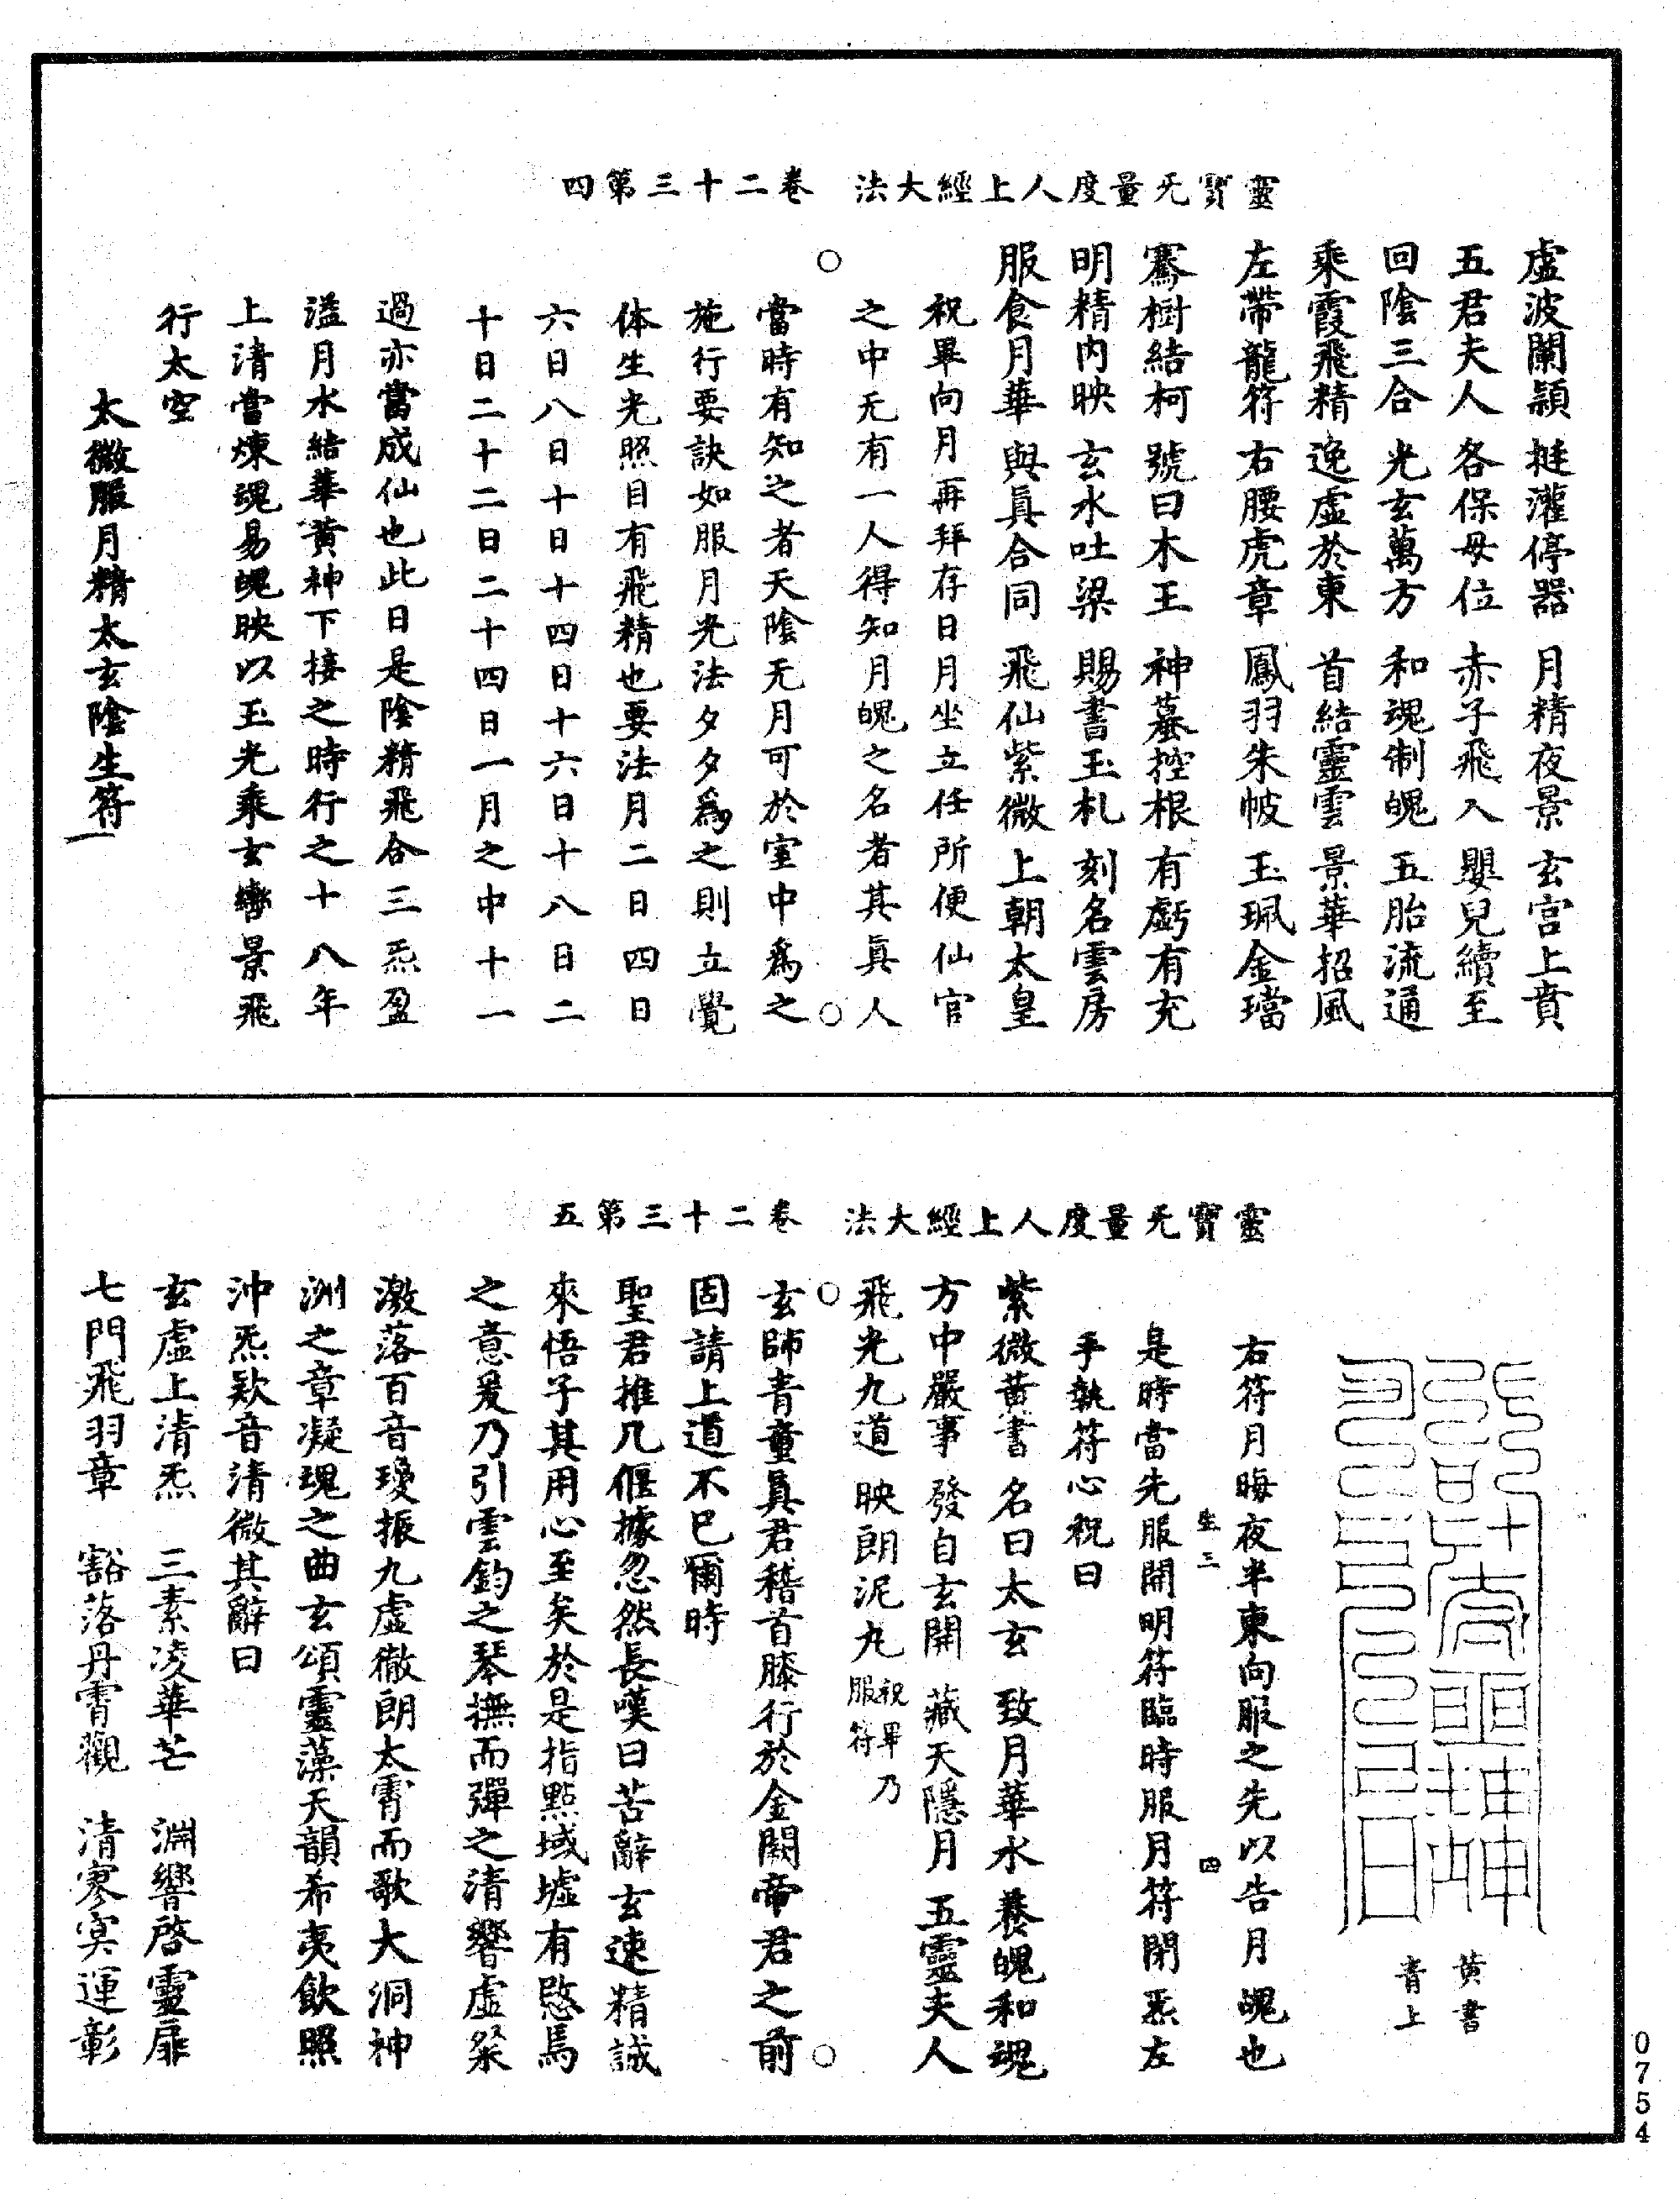 靈寶无量度人上經大法　卷二十三第四
虛波闌頴　摓灌停器　月精夜景　玄宮上賁
五君夫人　各保母位　赤子飛入　嬰兒續至
回陰三合　光玄萬方　和魂制魄　五胎流通
乘霞飛精　逸虛於東　首結靈雲　景華招風
左帶龍符　右腰虎章　鳳羽朱帔　玉珮金璫
騫樹結柯　號曰木王　神蟇控根　有虧有充
明精內映　玄水吐梁　賜書玉札　刻名雲房
服食月華　與眞合同　飛仙紫微　上朝太皇
祝畢向月再拜存日月坐立任所便仙官
之中无有一人得知月魄之名者其眞人
當時有知之者天陰无月可於室中爲之
施行要訣如服月光法夕夕爲之則立覺
体生光照目有飛精也要法月二日四日
六日八日十日十四日十六日十八日二
十日二十二日二十四日一月之中十一
過亦當成仙也此日是陰精飛合三炁盈
溢月水結華黃神下接之時行之十八年
上清當煉魂易魄映以玉光乘玄轡景飛
行太空
太微服月精太玄陰生符
靈寶无量度人上經大法　卷二十三第五
黃書
青上
右符月晦夜半東向服之先以告月魄也
生三　四
是時當先服開明符臨時服月符閉炁左
手執符心祝曰
紫微黃書　名曰太玄　致月華水　養魄和魂
方中嚴事　發自玄開　藏天隱月　五靈夫人
飛光九道　映朗泥丸　祝畢乃服符
玄師青童眞君稽首膝行於金闕帝君之前
固請上道不已爾時
聖君推几偃據忽然長嘆曰苦辭玄速精誠
來悟子其用心至矣於是指點域墟有愍焉
之意爰乃引雲鈞之琴撫而彈之清響虛粲
激落百音瓊振九虛徹朗太霄而歌大洞神
洲之章凝瑰之曲玄頌靈藻天韻希夷飲照
沖炁歎音清微其辭曰
玄虛上清炁　三素凌華芒　淵響啓靈扉
七門飛羽章　豁落丹霄觀　清寥冥運彰
0754